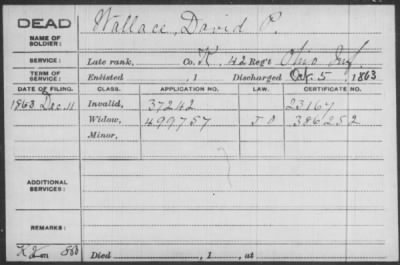 DEAD
NAME OF SOLDIER: Wallace, David P.
SERVICE: Late rank, Co. K, 42 Reg't Ohio Inf.
TERM OF SERVICE: Enlisted , 1 Discharged Oct. 5, 1863
DATE OF FILING. CLASS. APPLICATION NO. LAW. CERTIFICATE NO.
1863 Dec. 11 Invalid, 37242 23167
Widow, 499757 386252
Minor,
ADDITIONAL SERVICES:
REMARKS:
Died , 1 , at